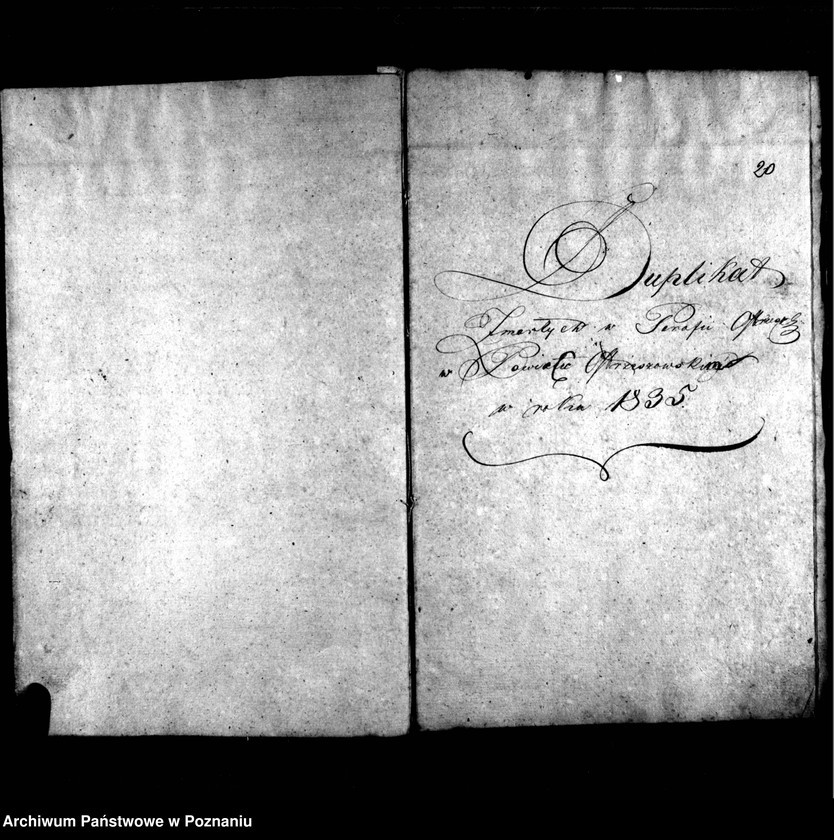 20
Duplikat
Zmarłych w Parafii
w Powiecie Ostrzeszowskim
w roku 1835.
Archiwum Państwowe w Poznaniu